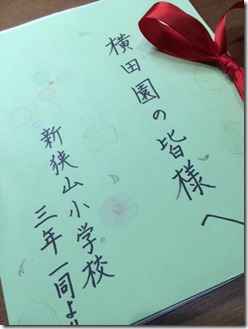 横田園の皆様へ
新狭山小学校
三年 一同より